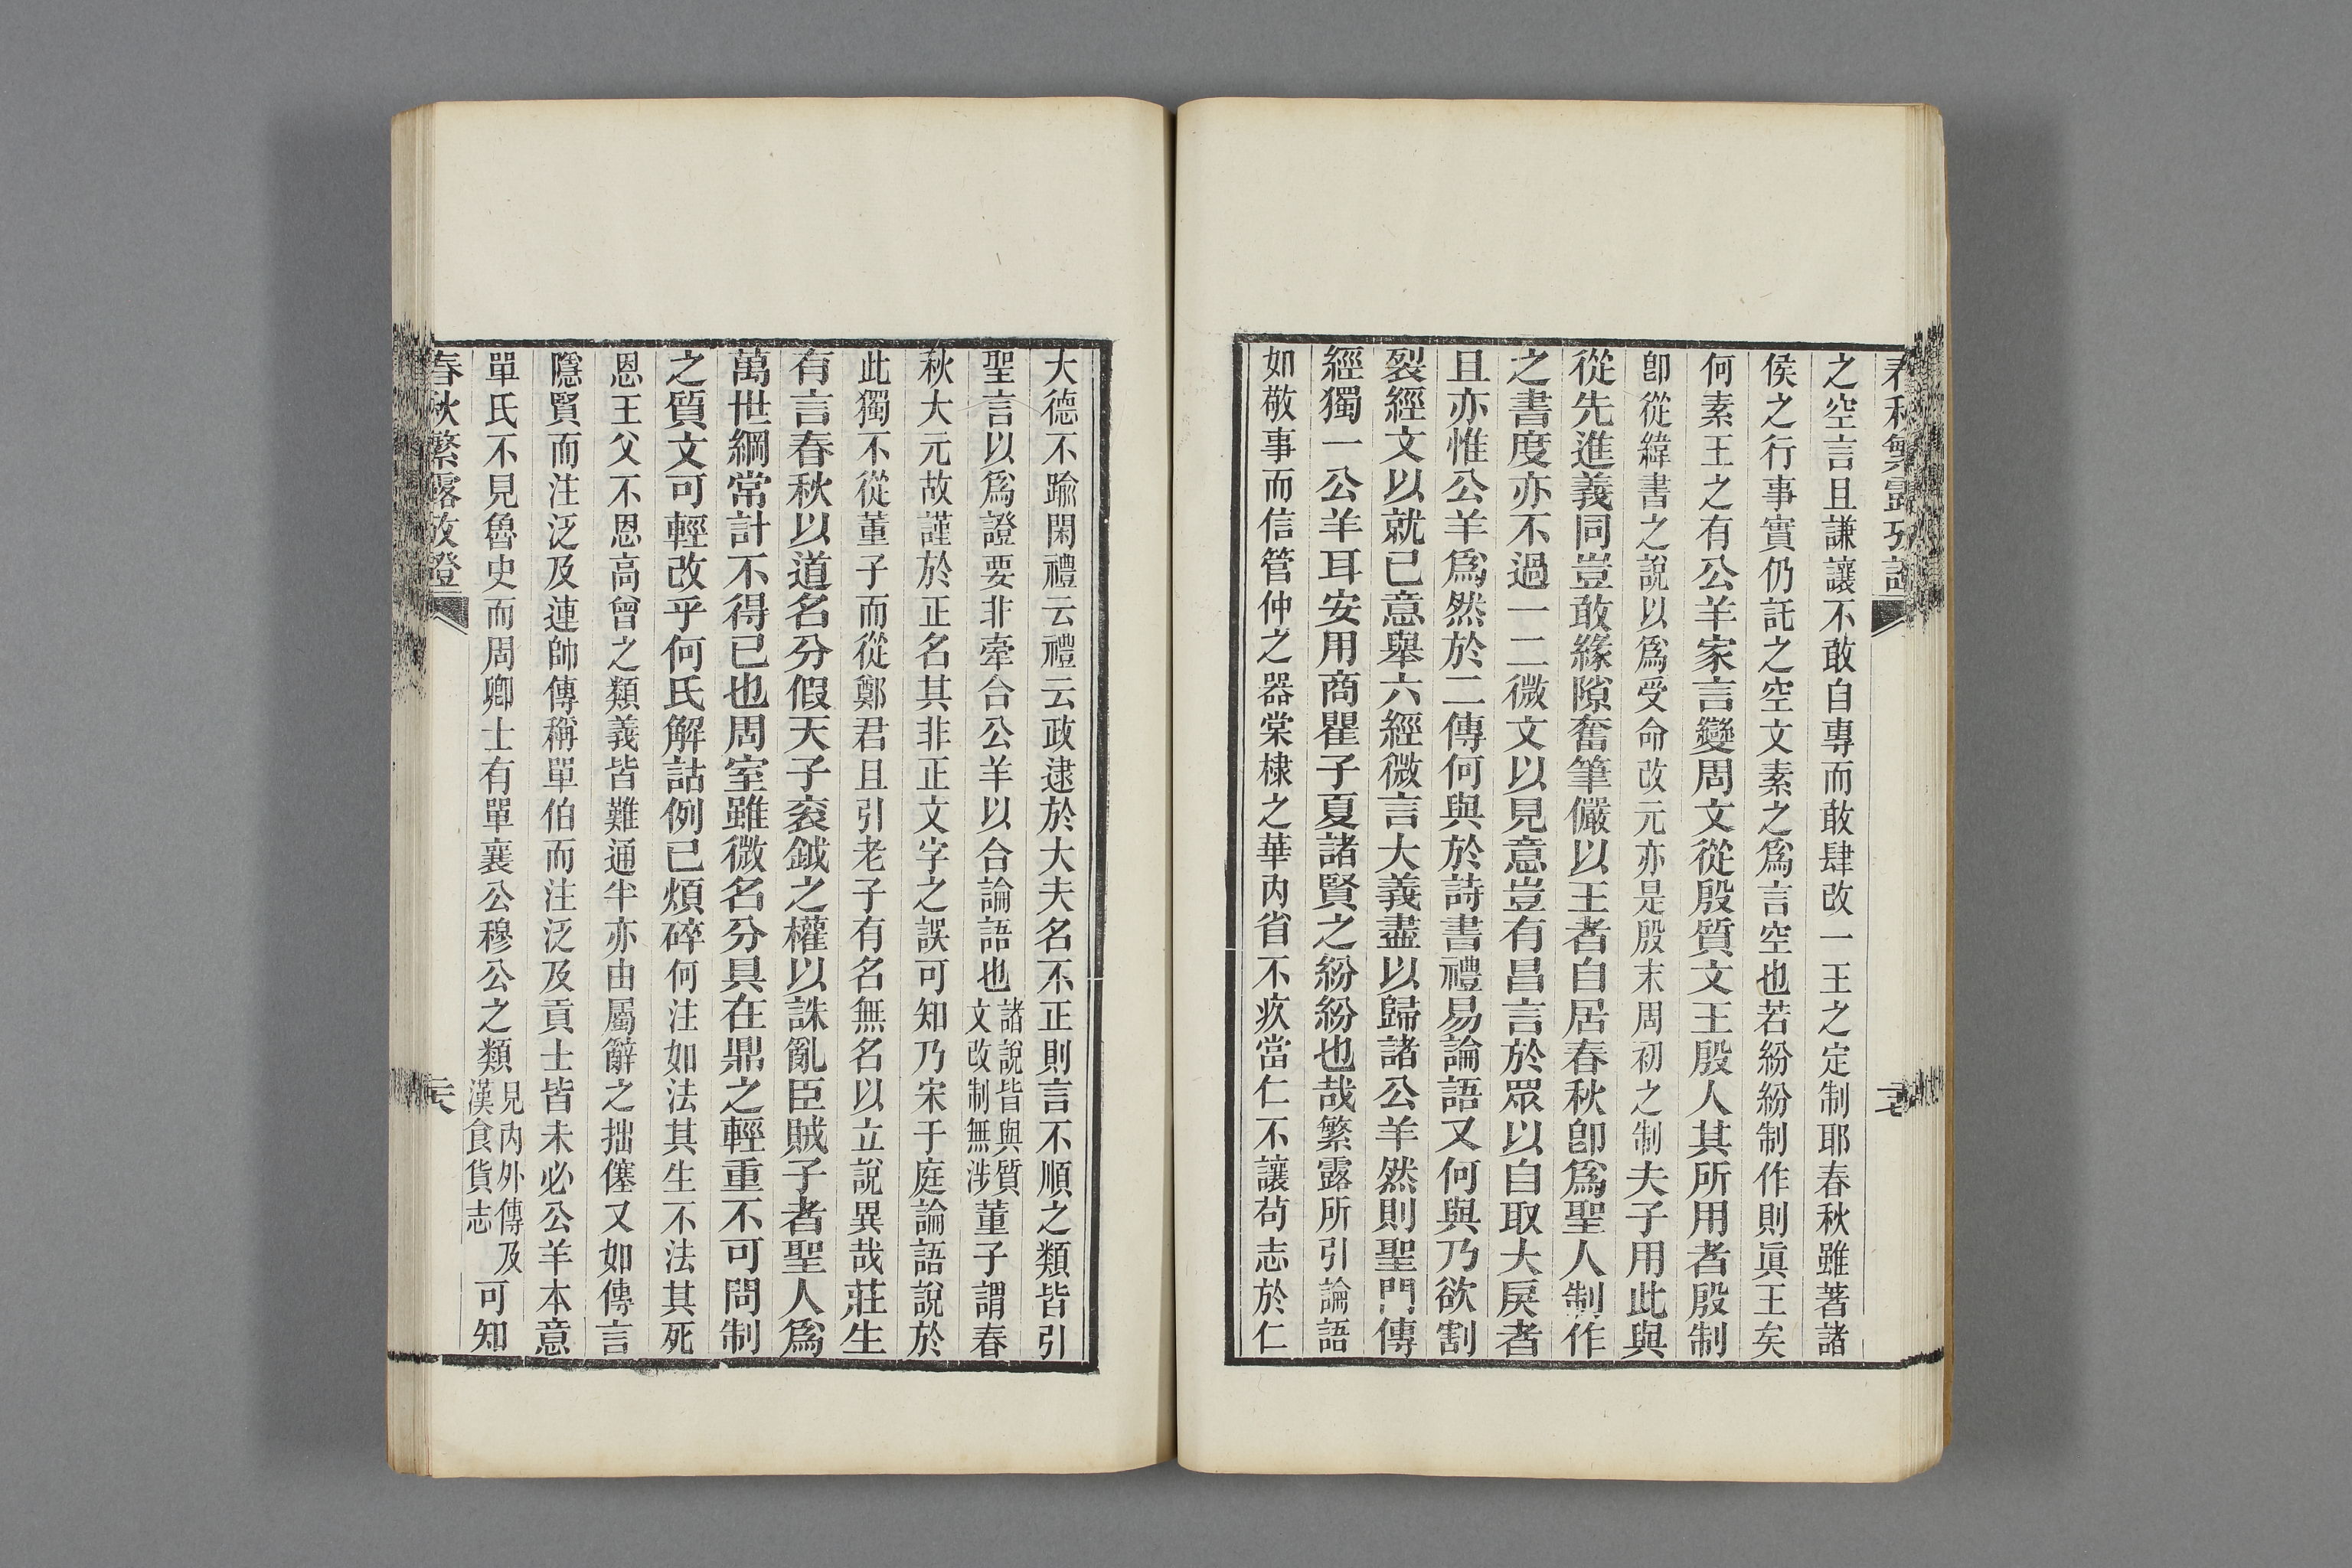 春秋繁露攷證
之空言且謙讓不敢自專而敢肆改一王之定制耶春秋雖著諸
侯之行事實仍託之空文素之爲言空也若紛紛制作則眞王矣
何素王之有公羊家言變周文從殷質文王殷人其所用者殷制
卽從緯書之說以爲受命改元亦是殷末周初之制夫子用此與
從先進義同豈敢緣隙奮筆儼以王者自居春秋卽爲聖人制作
之書度亦不過一二微文以見意豈有昌言於眾以自取大戾者
且亦惟公羊爲然於二傳何與於詩書禮易論語又何與乃欲割
裂經文以就已意舉六經微言大義盡以歸諸公羊然則聖門傳
經獨一公羊耳安用商瞿子夏諸賢之紛紛也哉繁露所引論語
如敬事而信管仲之器棠棣之華內省不疚當仁不讓苟志於仁
大德不踰閑禮云禮云政逮於大夫名不正則言不順之類皆引
聖言以爲證要非牽合公羊以合論語也諸說皆與質文改制無涉董子謂春
秋大元故謹於正名其非正文字之誤可知乃宋于庭論語說於
此獨不從董子而從鄭君且引老子有名無名以立說異哉莊生
有言春秋以道名分假天子袞鉞之權以誅亂臣賊子者聖人爲
萬世綱常計不得已也周室雖微名分具在鼎之輕重不可問制
之質文可輕改乎何氏解詁例已煩碎何注如法其生不法其死
恩王父不恩高曾之類義皆難通半亦由屬辭之拙僿又如傳言
隱賢而注泛及連帥傳稱單伯而注泛及貢士皆未必公羊本意
單氏不見魯史而周卿士有單襄公穆公之類見內外傳及漢食貨志可知
春秋繁露攷證